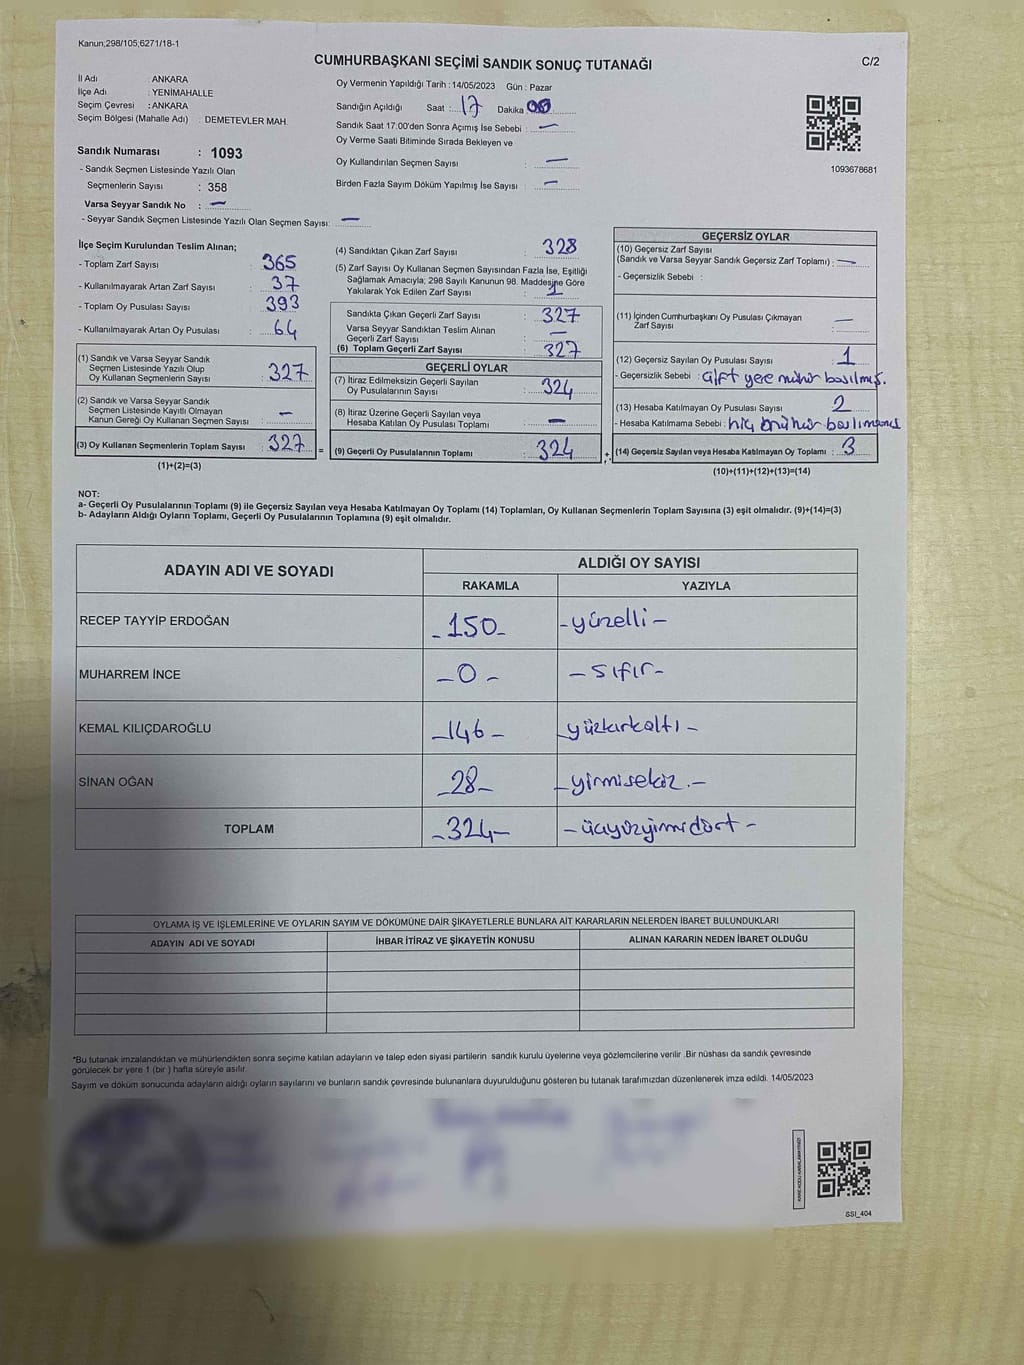 Kanun;298/105;6271/18-1
CUMHURBAŞKANI SEÇİMİ SANDIK SONUÇ TUTANAĞI
C/2
İl Adı : ANKARA
İlçe Adı : YENİMAHALLE
Seçim Çevresi : ANKARA
Seçim Bölgesi (Mahalle Adı) : DEMETEVLER MAH.
Oy Vermenin Yapıldığı Tarih : 14/05/2023 Gün : Pazar
Sandığın Açıldığı Saat : 17 Dakika 00
Sandık Saat 17:00'den Sonra Açımış İse Sebebi : —
Oy Verme Saati Bitiminde Sırada Bekleyen ve
Oy Kullandırılan Seçmen Sayısı : —
Birden Fazla Sayım Döküm Yapılmış İse Sayısı : —
1093678681
Sandık Numarası : 1093
- Sandık Seçmen Listesinde Yazılı Olan
Seçmenlerin Sayısı : 358
Varsa Seyyar Sandık No : —
- Seyyar Sandık Seçmen Listesinde Yazılı Olan Seçmen Sayısı: —
İlçe Seçim Kurulundan Teslim Alınan;
- Toplam Zarf Sayısı : 365
- Kullanılmayarak Artan Zarf Sayısı : 37
- Toplam Oy Pusulası Sayısı : 393
- Kullanılmayarak Artan Oy Pusulası : 64
(1) Sandık ve Varsa Seyyar Sandık
Seçmen Listesinde Yazılı Olup
Oy Kullanan Seçmenlerin Sayısı : 327
(2) Sandık ve Varsa Seyyar Sandık
Seçmen Listesinde Kayıtlı Olmayan
Kanun Gereği Oy Kullanan Seçmen Sayısı : —
(3) Oy Kullanan Seçmenlerin Toplam Sayısı : 327
(1)+(2)=(3)
(4) Sandıktan Çıkan Zarf Sayısı : 328
(5) Zarf Sayısı Oy Kullanan Seçmen Sayısından Fazla İse, Eşitliği
Sağlamak Amacıyla; 298 Sayılı Kanunun 98. Maddesine Göre
Yakılarak Yok Edilen Zarf Sayısı : 1
Sandıkta Çıkan Geçerli Zarf Sayısı : 327
Varsa Seyyar Sandıktan Teslim Alınan
Geçerli Zarf Sayısı : —
(6) Toplam Geçerli Zarf Sayısı : 327
GEÇERLİ OYLAR
(7) İtiraz Edilmeksizin Geçerli Sayılan
Oy Pusulalarının Sayısı : 324
(8) İtiraz Üzerine Geçerli Sayılan veya
Hesaba Katılan Oy Pusulası Toplamı : —
= (9) Geçerli Oy Pusulalarının Toplamı : 324 +
GEÇERSİZ OYLAR
(10) Geçersiz Zarf Sayısı
(Sandık ve Varsa Seyyar Sandık Geçersiz Zarf Toplamı) : —
- Geçersizlik Sebebi :
(11) İçinden Cumhurbaşkanı Oy Pusulası Çıkmayan
Zarf Sayısı : —
(12) Geçersiz Sayılan Oy Pusulası Sayısı : 1
- Geçersizlik Sebebi : Çift yere mühür basılmış.
(13) Hesaba Katılmayan Oy Pusulası Sayısı : 2
- Hesaba Katılmama Sebebi : hiç mühür basılmamış
(14) Geçersiz Sayılan veya Hesaba Katılmayan Oy Toplamı : 3
(10)+(11)+(12)+(13)=(14)
NOT:
a- Geçerli Oy Pusulalarının Toplamı (9) ile Geçersiz Sayılan veya Hesaba Katılmayan Oy Toplamı (14) Toplamları, Oy Kullanan Seçmenlerin Toplam Sayısına (3) eşit olmalıdır. (9)+(14)=(3)
b- Adayların Aldığı Oyların Toplamı, Geçerli Oy Pusulalarının Toplamına (9) eşit olmalıdır.
ADAYIN ADI VE SOYADI
ALDIĞI OY SAYISI
RAKAMLA YAZIYLA
RECEP TAYYİP ERDOĞAN -150- -yüzelli-
MUHARREM İNCE -0- -sıfır-
KEMAL KILIÇDAROĞLU -146- -yüzkırkaltı-
SİNAN OĞAN -28- -yirmisekiz.-
TOPLAM -324- -üçyüzyirmidört-
OYLAMA İŞ VE İŞLEMLERİNE VE OYLARIN SAYIM VE DÖKÜMÜNE DAİR ŞİKAYETLERLE BUNLARA AİT KARARLARIN NELERDEN İBARET BULUNDUKLARI
ADAYIN ADI VE SOYADI İHBAR İTİRAZ VE ŞİKAYETİN KONUSU ALINAN KARARIN NEDEN İBARET OLDUĞU
*Bu tutanak imzalandıktan ve mühürlendikten sonra seçime katılan adayların ve talep eden siyasi partilerin sandık kurulu üyelerine veya gözlemcilerine verilir .Bir nüshası da sandık çevresinde
görülecek bir yere 1 (bir ) hafta süreyle asılır.
Sayım ve döküm sonucunda adayların aldığı oyların sayılarını ve bunların sandık çevresinde bulunanlara duyurulduğunu gösteren bu tutanak tarafımızdan düzenlenerek imza edildi. 14/05/2023
SSI_404